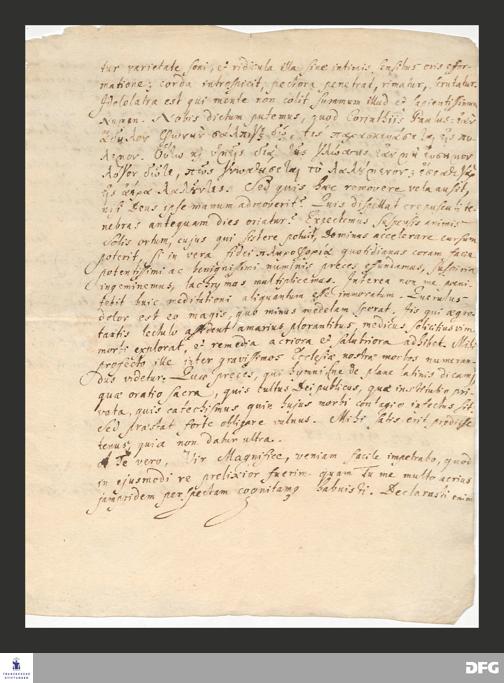 tur varietate soni, et ridicula illa sine intimis sensibus oris efor-
matione; corda introspicit, pectora penetrat, rimatur, scrutatur.
Idololatra est qui mente non colit summum illud et sapientissimum
Numen. Nobis dictum putemus, quod Corinthiis Paulus: ἐὰν
ἄδηλον φωνὴν σάλπιγξ δῷ, τίς παρασκευάσεται εἰς πό-
λεμον. Οὕτω καὶ ὑμεῖς διὰ τῆς γλώσσης ἐὰν μὴ εὔσημον
λόγον δῶτε, πῶς γνωσθήσεται τὸ λαλούμενον; ἔσεσθε γὰρ
εἰς ἀέρα λαλοῦντες. Sed quis haec removere vela ausit,
nisi Deus ipse manum admoverit? Quis dissipat crepusculi te-
nebras antequam dies oriatur? Expectemus suspensis animis
Solis ortum, cujus qui sistere potuit, Dominus accelerare cursum
poterit, si in vera fidei πληροφορίᾳ quotidianas coram facie
potentissimi ac benignissimi numinis preces effundamus, suspiria
ingeminemus, lachrymas multiplicemus. Interea non me poeni-
tebit huic meditationi aliquantum esse immoratum. Querulus
dolor est eo magis, quo minus medelam sperat. His qui aegro-
tantis lectulo assident amarius plorantibus, medicus solicitus vim
morbi explorat, et remedia acriora et salubriora adhibet. Mihi
profecto ille inter gravissimos Ecclesiae nostrae morbos numeran-
dus videtur. Quae preces, qui hymni, ne de plane latinis dicam,
quae oratio sacra, quis cultus Dei publicus, quae institutio pri-
vata, quis catechismus qui hujus morbi contagio infectus sit.
Sed praestat forte obligare vulnus. Mihi satis erit prodiisse
tenus, quia non datur ultra.
Te vero, Vir Magnifice, veniam facile impetrabo, quod
in ejusmodi re prolixior fuerim quam Tu me multo acrius
jampridem perspectam cognitamq habuisti. Declarasti enim
FRANCKESCHE
STIFTUNGEN
DFG